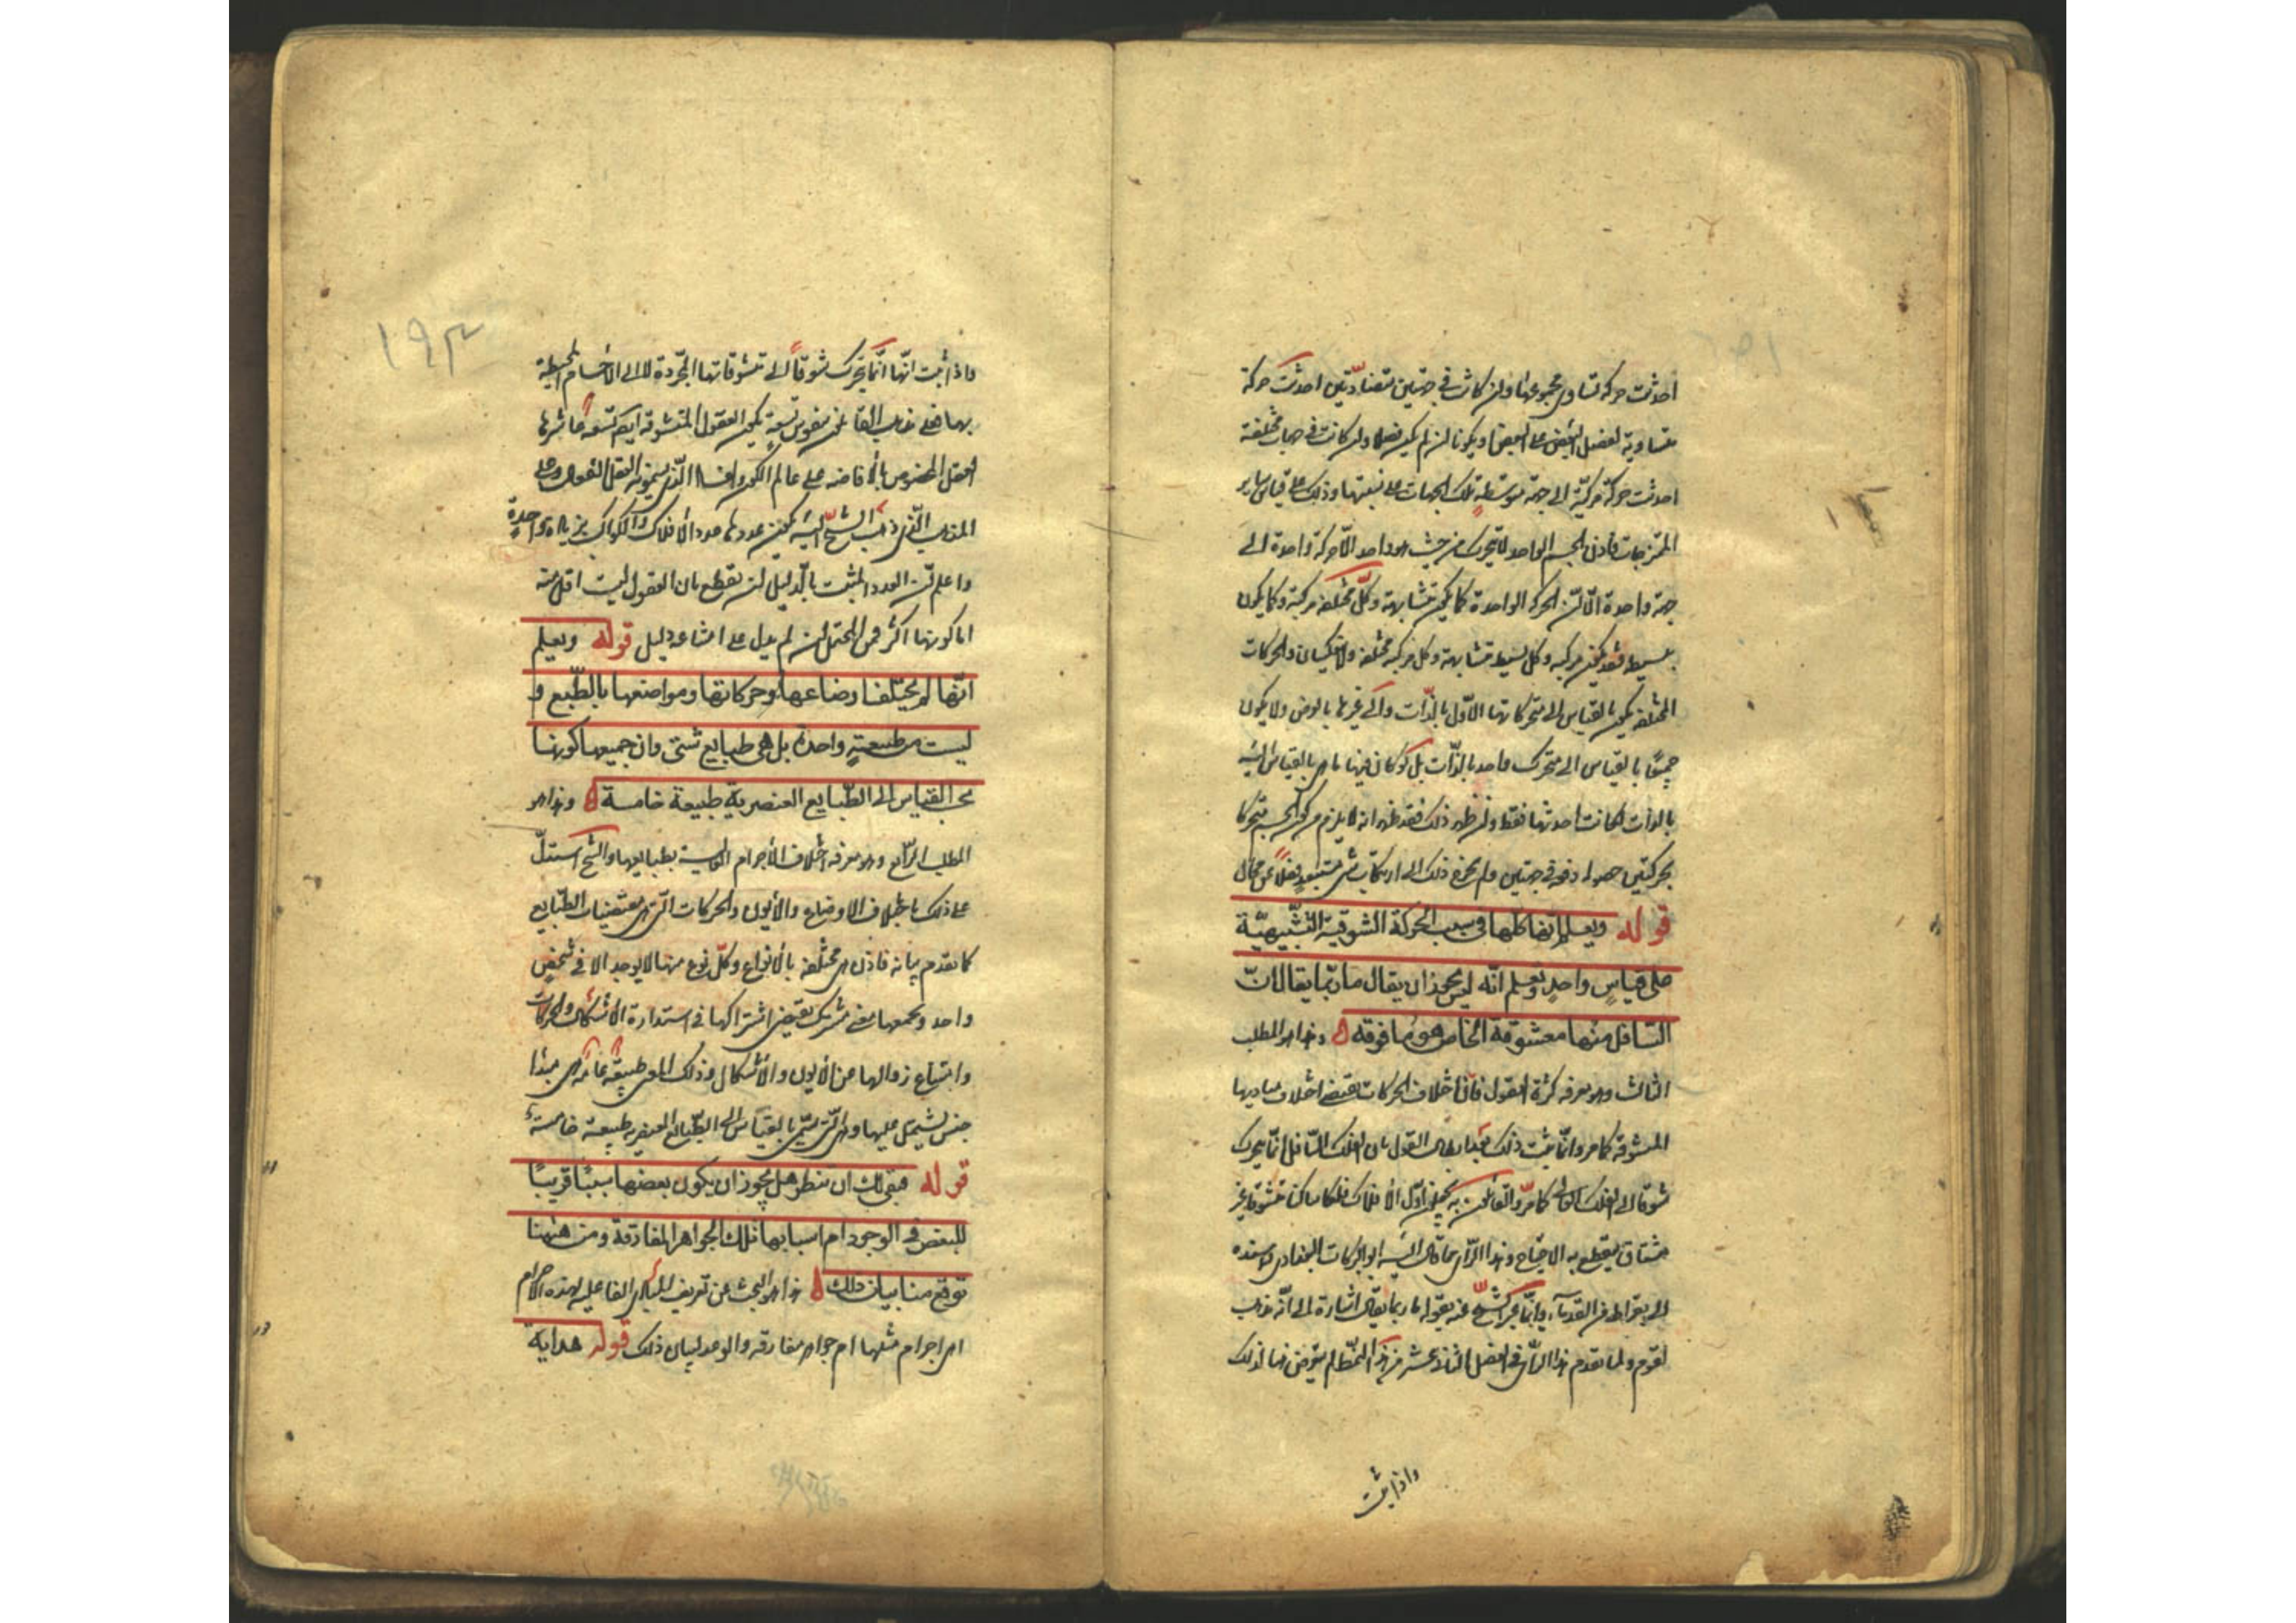 احدثت حركة تساوى مجموعهما وان كانت فى جهتين متضادتين احدثت حركة
مساوية لفضل البعض على البعض او سكونا ان لم يكن فضل وان كانت فى جهات مختلفة
احدثت حركة مركبة الى جهة يتوسط تلك الجهات على نسبتها وذلك على قياس ساير
الممتزجات فاذن الجسم الواحد لا يتحرك من حيث هو واحد الا حركة واحدة الى
جهة واحدة الا ان الحركة الواحدة كما يكون متشابهة وكل مختلفة مركبة وكما يكون
بسيطة فقد يكون مركبة وكل بسيطة متشابهة وكل مركبة مختلفة ولا ينعكسان والحركات
المختلفة يكون بالقياس الى متحركاتها الاول بالذات والى غيرها بالعرض ولا يكون
جميعا بالقياس الى متحرك واحد بالذات بل لو كان فيها ما هى بالقياس اليه
بالذات لكانت احدثها فقط واذ ظهر ذلك فقد ظهر انه لا يلزم من كون الجسم متحركا
بحركتين حصوله دفعة فى جهتين ولم يحوج ذلك الى ارتكاب شىء مستبعد فضلا عن محال
قوله وتعلم انها كلها فى سبب الحركة الشوقية التشبيهية
على قياس واحد وتعلم انه ليس يجوز ان يقال ما ربما يقال ان
السافل منها معشوقه الخاص هو ما فوقه ه وهذا هو المطلب
الثالث وهو معرفة كثرة العقول فان اختلاف الحركات يقتضى اختلاف مباديها
المتشوقة كما مر وانما يثبت ذلك بعد ابطال القول بان الفلك السافل انما يتحرك
شوقا الى الفلك العالى كما مر والقائلون به يجعلون اول الافلاك فلكا ساكنا متشوقا غير
مشتاق ينقطع به الاحتياج وهذا الرأى مما قال اليه ابو البركات البغدادى واسنده
الى بقراط من القدماء وانما عبر الشيخ عنه بقوله ما ربما يقال اشارة الى انه مذهب
لقوم ولما تقدم هذا الرأى فى الفصل الثانى عشر من هذا النمط لم يتعرض هنا لذلك
واذا ثبت
١٩٣
واذا ثبت انها انما يتحرك شوقا الى متشوقاتها المجردة لا الى الاجسام المحيطة
بها فعلى مذهب القائلين بنفوس تسعة يكون العقول المتشوقة ايضا تسعة عاشرها
العقل المخصوص بالافاضة على عالم الكون والفساد الذى يسمونه العقل الفعال وعلى
المذهب الذى ذهب الشيخ اليه يكون عددها عدد الافلاك والكواكب بزيادة واحدة
واعلم ان العدد المثبت بالدليل ان يقطع بان العقول ليست اقل منه
اما كونها اكثر فمن المحتمل اذ لم يدل على امتناعه دليل قوله وتعلم
انها لم يختلف اوضاعها وحركاتها ومواضعها بالطبع و
ليست من طبيعة واحدة بل هى طبايع شتى وان جميعها كونها
بحسب القياس الى الطبايع العنصرية طبيعة خامسة ه وهذا هو
المطلب الرابع وهو معرفة اختلاف الاجرام السماوية بطبايعها والشيخ استدل
على ذلك باختلاف الاوضاع والايون والحركات التى هى مقتضيات الطبايع
كما تقدم بيانه فاذن هى مختلفة بالانواع وكل نوع منها لا يوجد الا فى شخص
واحد ويجمعها معنى مشترك يقتضى اشتراكها فى استدارة الاشكال والحركات
وامتناع زوالها من الايون والاشكال وذلك المعنى طبيعة عامة هى مبدأ
جنس يشتمل عليها وهى التى يسمى بالقياس الى الطبايع العنصرية طبيعة خامسة
قوله فبقى لك ان تنظر هل يجوز ان يكون بعضها سببا قريبا
للبعض فى الوجود ام اسبابها تلك الجواهر المفارقة ومن ههنا
توقع منا بيان ذلك ه هذا هو البحث عن تعريف المبادى الفاعلية لهذه الاجرام
اهى اجرام مثلها ام جواهر مفارقة والوعد لبيان ذلك قوله هداية